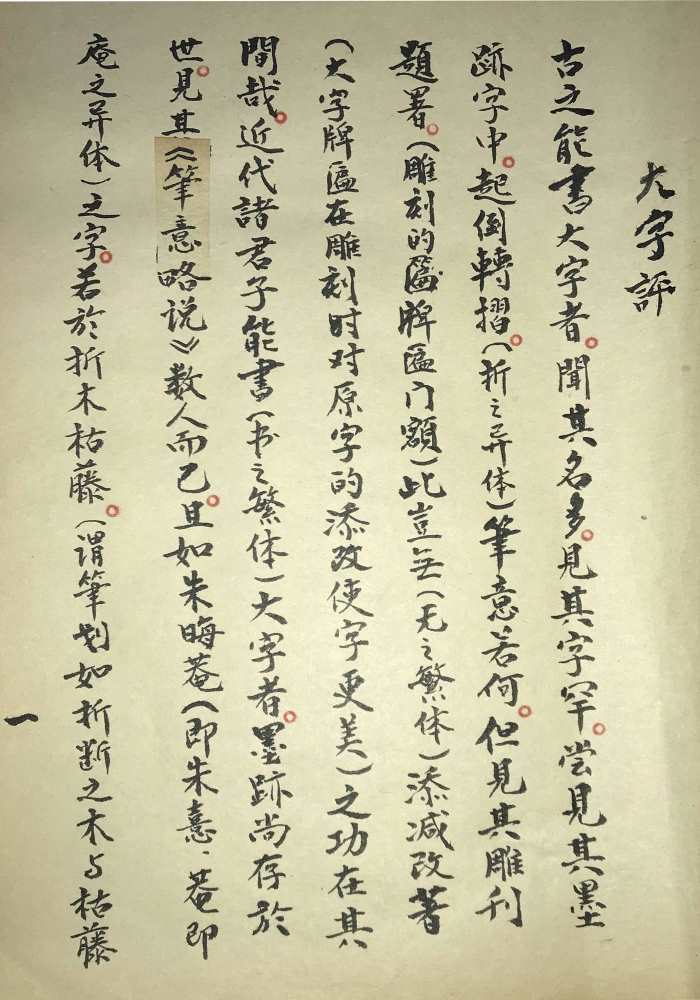 大字評
古之能書大字者。聞其名多。見其字罕。尝見其墨
跡字中。起倒轉摺。（折之异体）筆意若何。但見其雕刊
題署。（雕刻的匾牌匾门額）此豈無（无之繁体）添减改著
（大字牌匾在雕刻时对原字的添改使字更美）之功在其
間哉。近代諸君子能書（书之繁体）大字者。墨跡尚存於
世。見其《筆意略说》数人而已。且如朱晦菴（即朱憙、菴即
庵之异体）之字。若於折木枯藤。（谓筆划如折断之木与枯藤
一